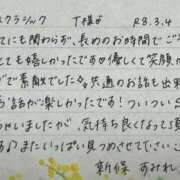 クラシック T様 R8.3.4
てにも関わらず、長めのお時間でご
たことが嬉しかったですっ優しくて笑顔が
で素敵でした 共通のお話も出来
お話が楽しかったです!ついつい
ちゃいましたが、気持ち良くなって頂
またいっぱい見つめさせて下さい
新保 すみれ